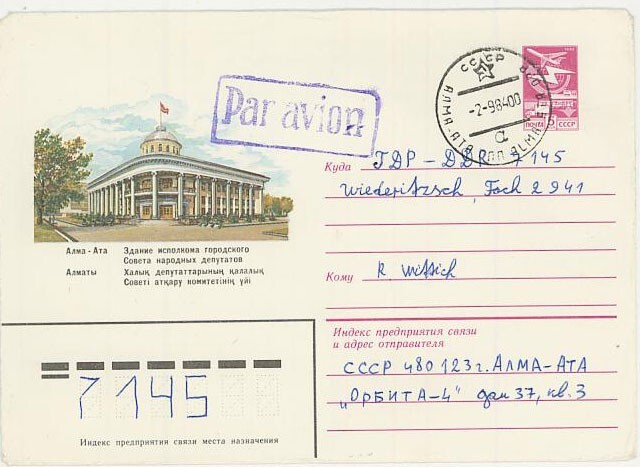 Par avion
СССР
АЛМА-АТА
-2-9 84 00
ПОЧТА СССР
Куда ГДР - DDR 7145
Wiederitzsch, Fach 2941
Кому R. Wittich
Алма-Ата Здание исполкома городского
Совета народных депутатов
Алматы Халық депутаттарының қалалық
Советі атқару комитетінің үйі
Индекс предприятия связи
и адрес отправителя
СССР 480123 г. АЛМА-АТА
„ОРБИТА-4" дом 37, кв. 3
7145
Индекс предприятия связи места назначения